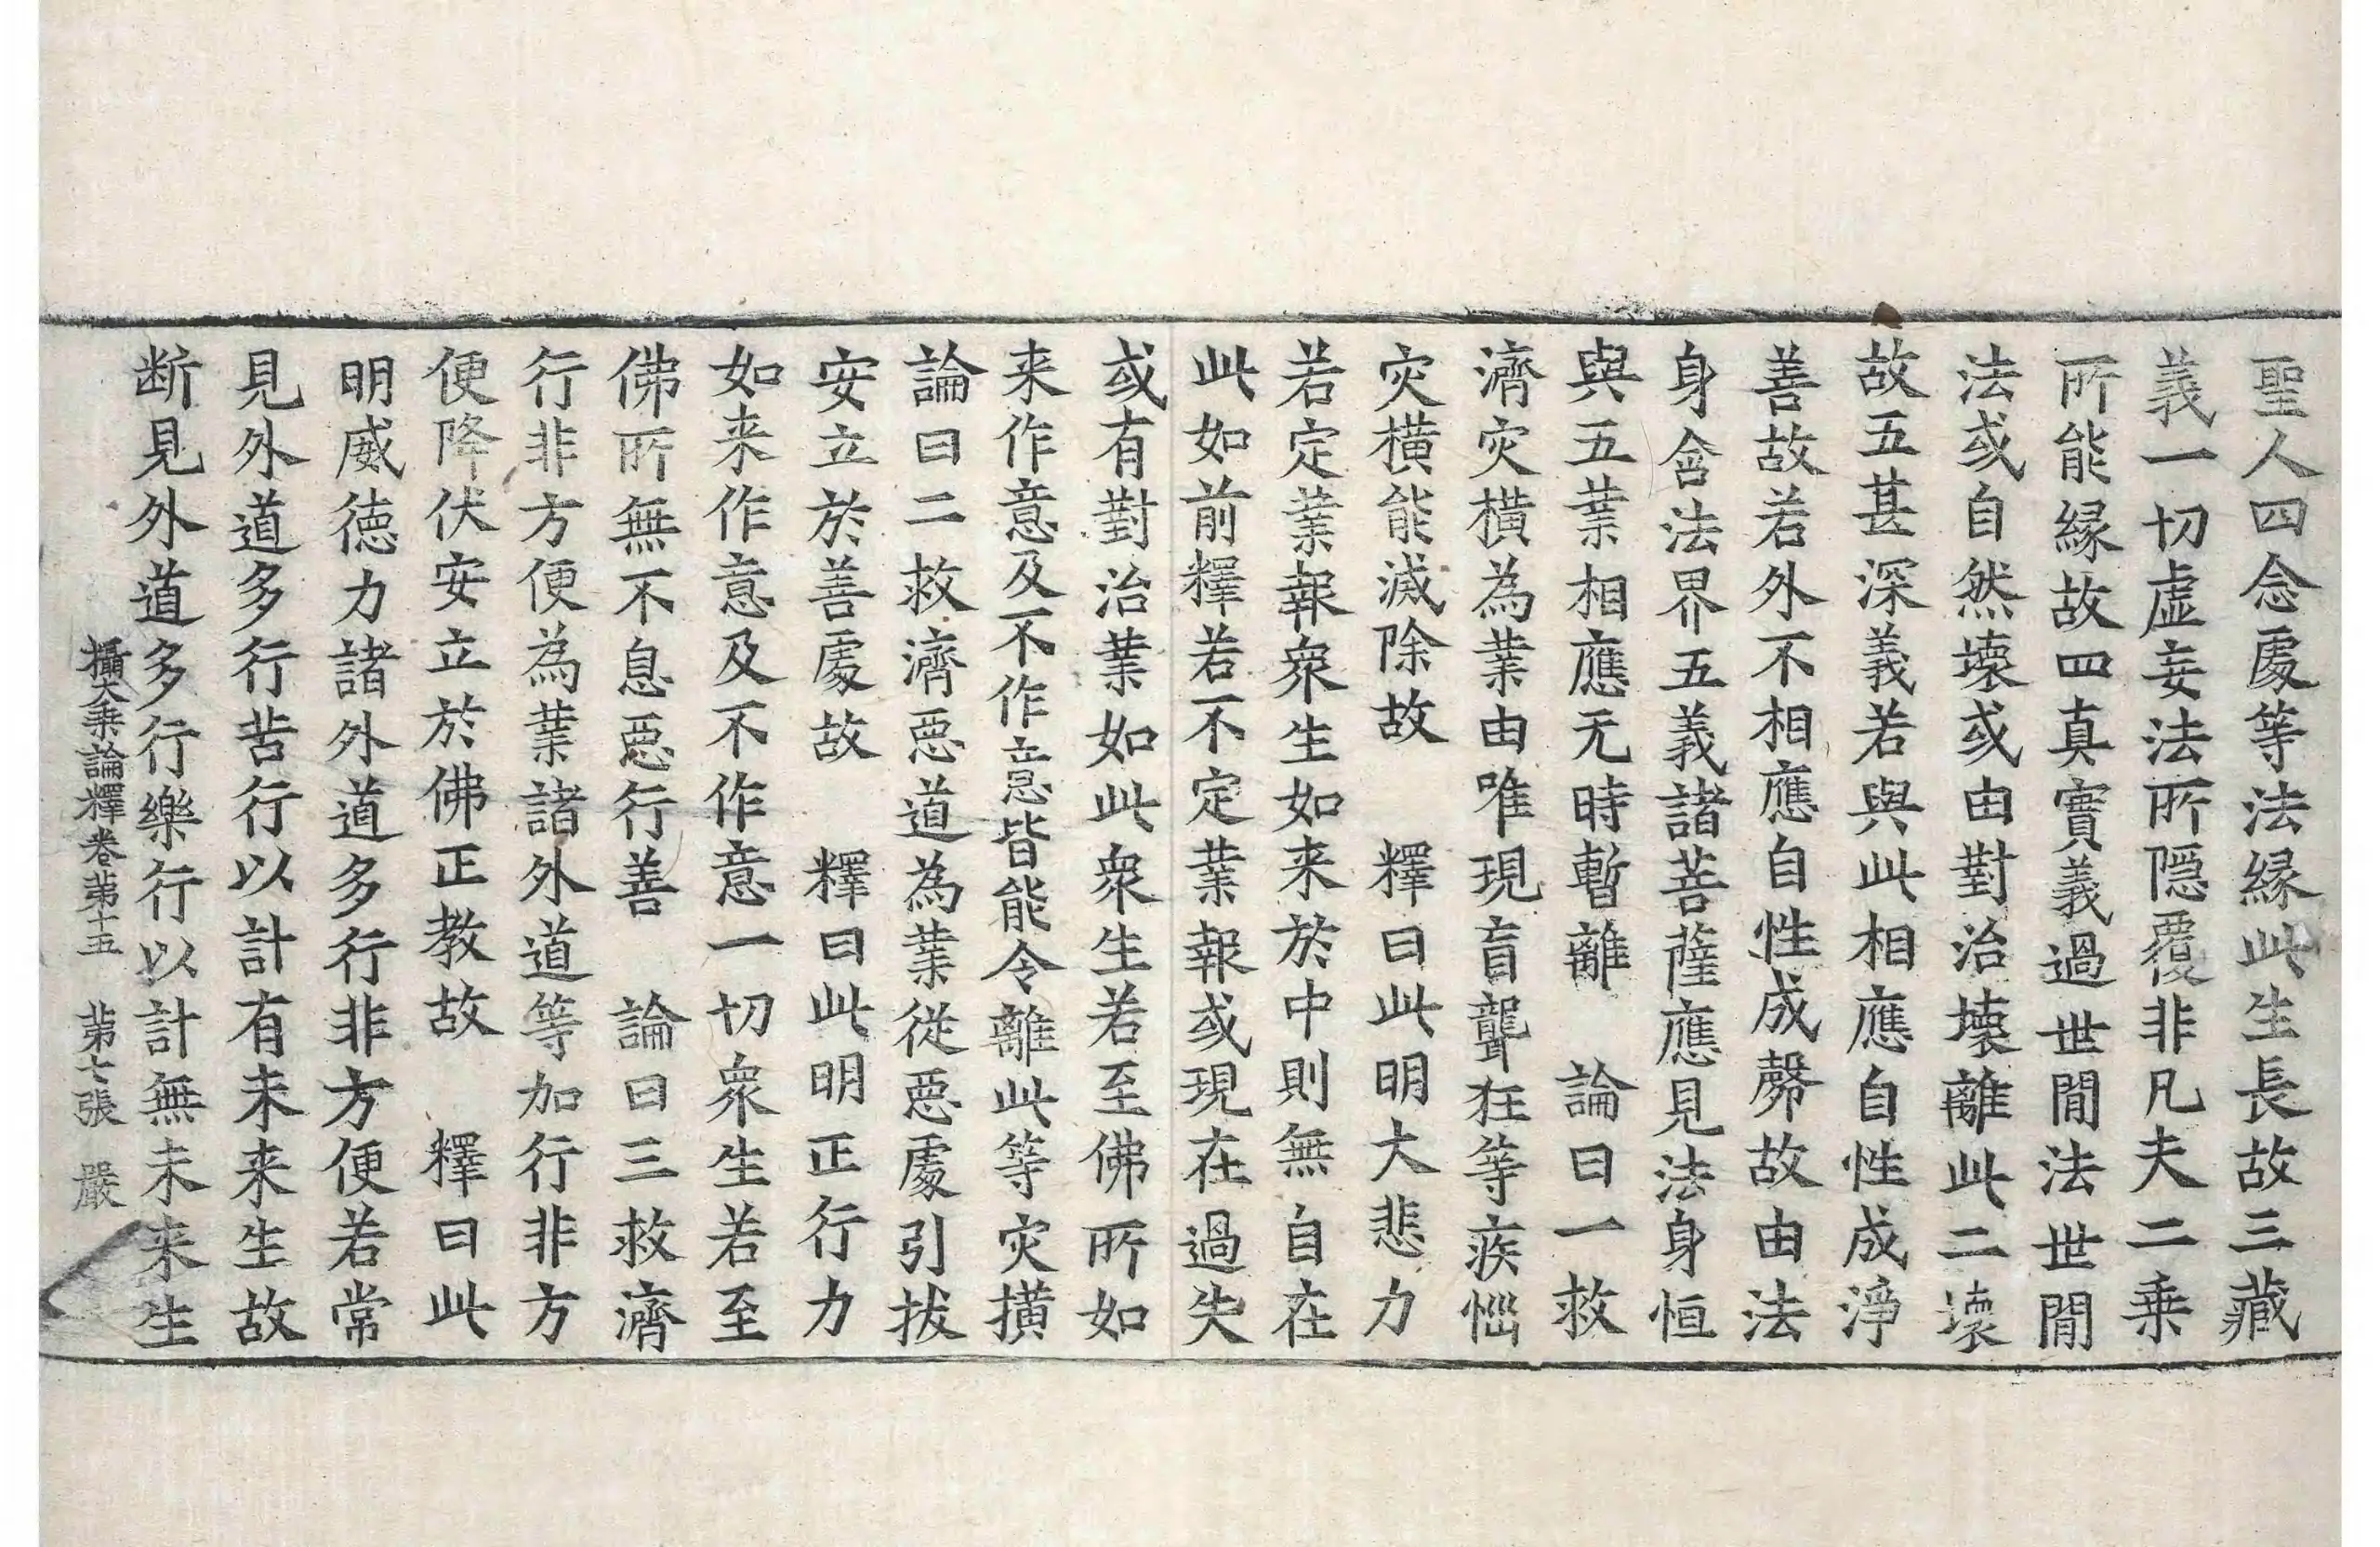 聖人四念處等法緣此生長故三藏
義一切虛妄法所隱覆非凡夫二乗
所能緣故四真實義過世間法世間
法或自然壞或由對治壞離此二壞
故五甚深義若與此相應自性成淨
善故若外不相應自性成㲉故由法
身含法界五義諸菩薩應見法身恒
與五業相應无時暫離　論曰一救
濟灾橫為業由唯現盲聾狂等疾惱
灾橫能滅除故　釋曰此明大悲力
若定業報衆生如来於中則無自在
此如前釋若不定業報或現在過失
或有對治業如此衆生若至佛所如
来作意及不作意皆能令離此等灾撗
論曰二救濟惡道為業從惡處引拔
安立於善處故　釋曰此明正行力
如来作意及不作意一切衆生若至
佛所無不息惡行善　論曰三救濟
行非方便為業諸外道等加行非方
便降伏安立於佛正教故　釋曰此
明威德力諸外道多行非方便若常
見外道多行苦行以計有未来生故
断見外道多行樂行以計無未来生
攝大乗論釋卷苐十五　苐七張　嚴